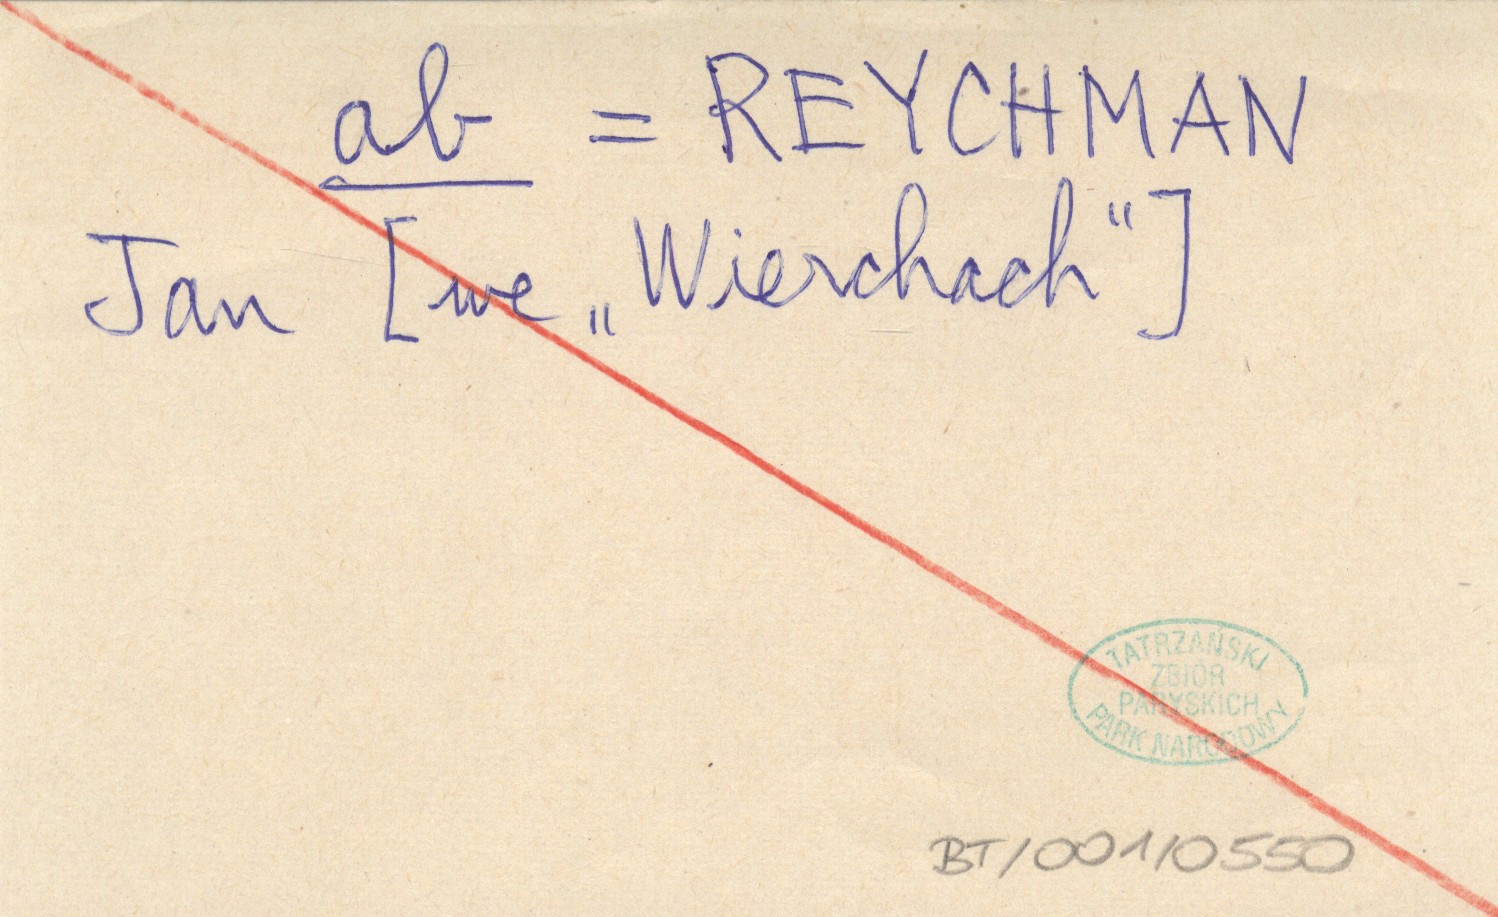 ab = REYCHMAN
Jan [we „Wierchach“]
TATRZAŃSKI
ZBIÓR
PARYSKICH
PARK NARODOWY
BT/001/0550